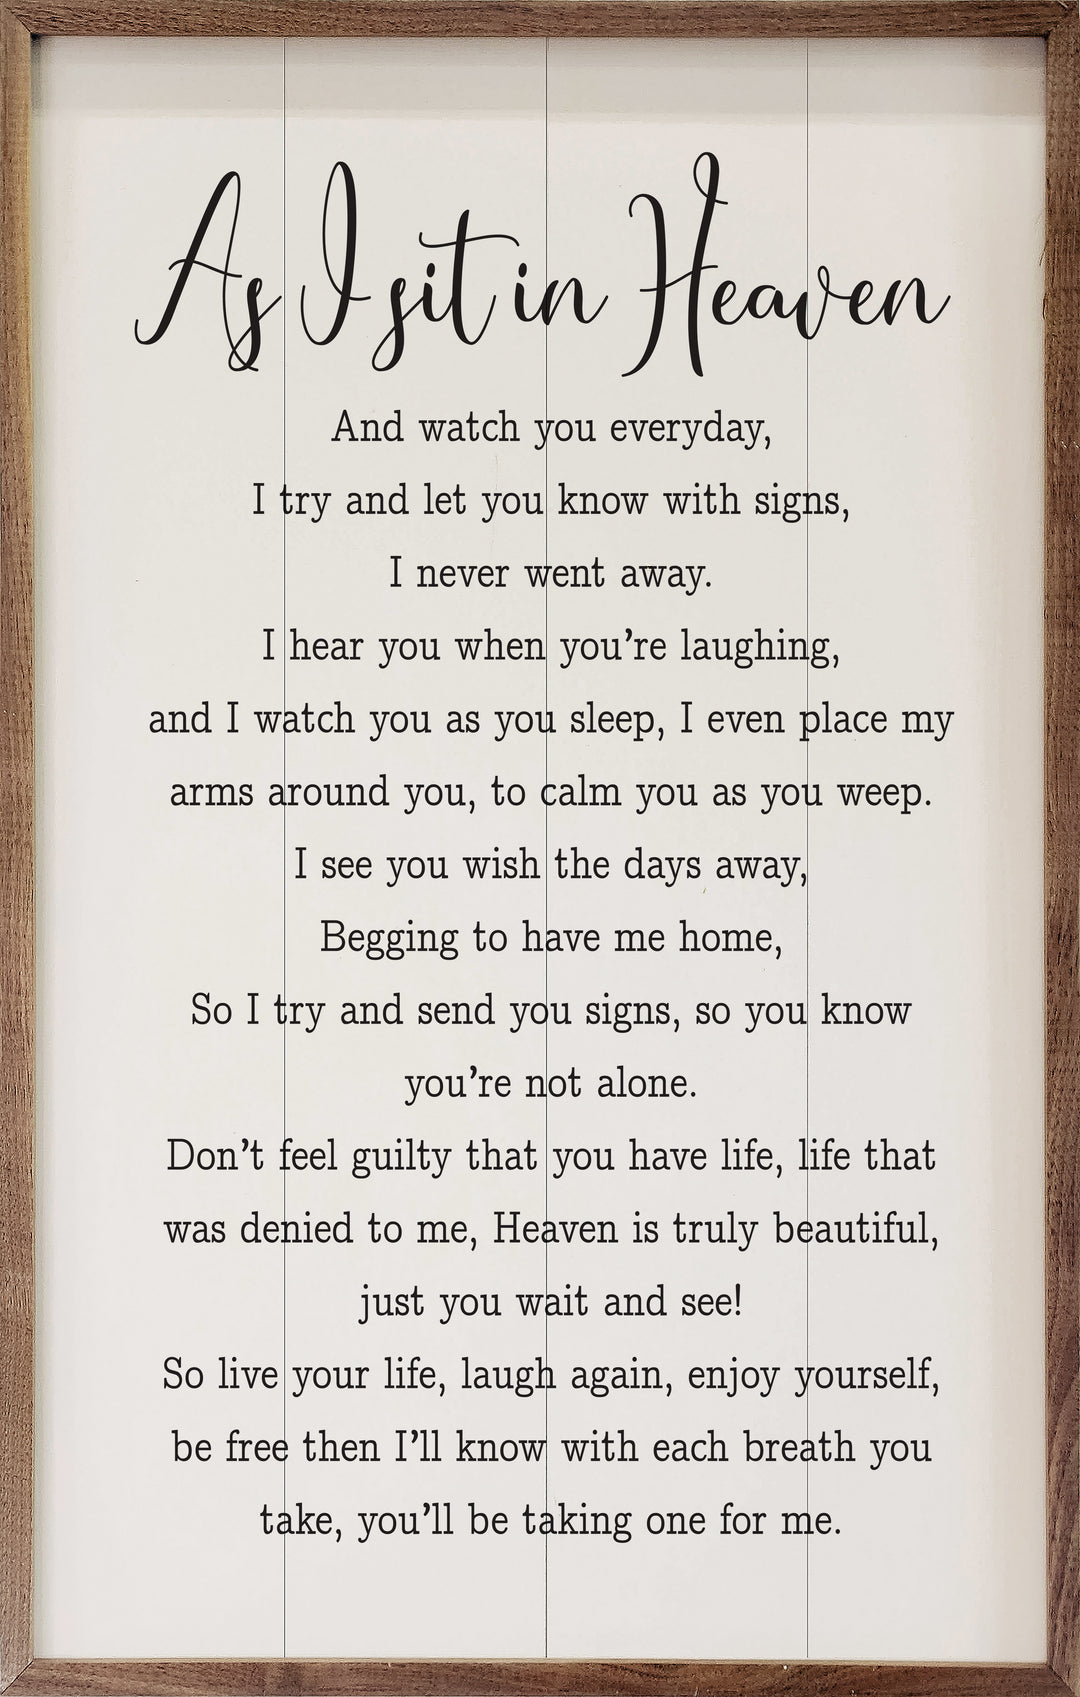 As I sit in Heaven
And watch you everyday,
I try and let you know with signs,
I never went away.
I hear you when you’re laughing,
and I watch you as you sleep, I even place my
arms around you, to calm you as you weep.
I see you wish the days away,
Begging to have me home,
So I try and send you signs, so you know
you’re not alone.
Don’t feel guilty that you have life, life that
was denied to me, Heaven is truly beautiful,
just you wait and see!
So live your life, laugh again, enjoy yourself,
be free then I’ll know with each breath you
take, you’ll be taking one for me.